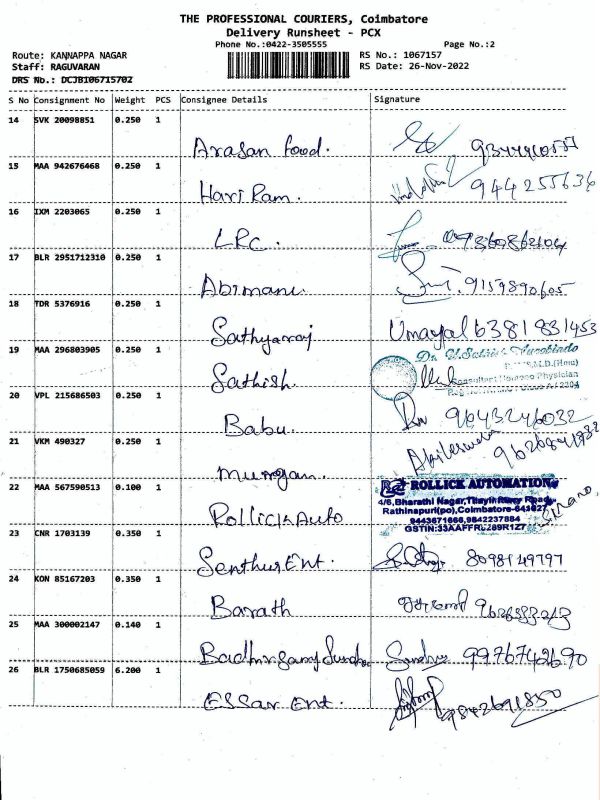 THE PROFESSIONAL COURIERS, Coimbatore
Delivery Runsheet - PCX
Phone No.:0422-3505555 Page No.:2
Route: KANNAPPA NAGAR RS No.: 1067157
Staff: RAGUVARAN RS Date: 26-Nov-2022
DRS No.: DCJB106715702
S No Consignment No Weight PCS Consignee Details Signature
14 SVK 20098851 0.250 1
Arasan food.
15 MAA 942676468 0.250 1
Hari Ram. 944255636
16 IXM 2203065 0.250 1
LRC.
17 BLR 2951712310 0.250 1
Abimani. 9159890605
18 TDR 5376916 0.250 1
Sathyaraj Umayal 6381831453
19 MAA 296803905 0.250 1
Sathish
20 VPL 215686503 0.250 1
Babu. 9643246032
21 VKM 490327 0.250 1
Murugan.
22 MAA 567590513 0.100 1 ROLLICK AUTOMATION
4/6, Bharathi Nagar,
Rathinapuri(po),Coimbatore-641027
Rollick Auto 9443671666,9842237884
23 CNR 1703139 0.350 1
Senthur Ent. 8098149797
24 KON 85167203 0.350 1
Barath
25 MAA 300002147 0.140 1
9976742690
26 BLR 1750685059 6.200 1
Essar Ent. 9842691850